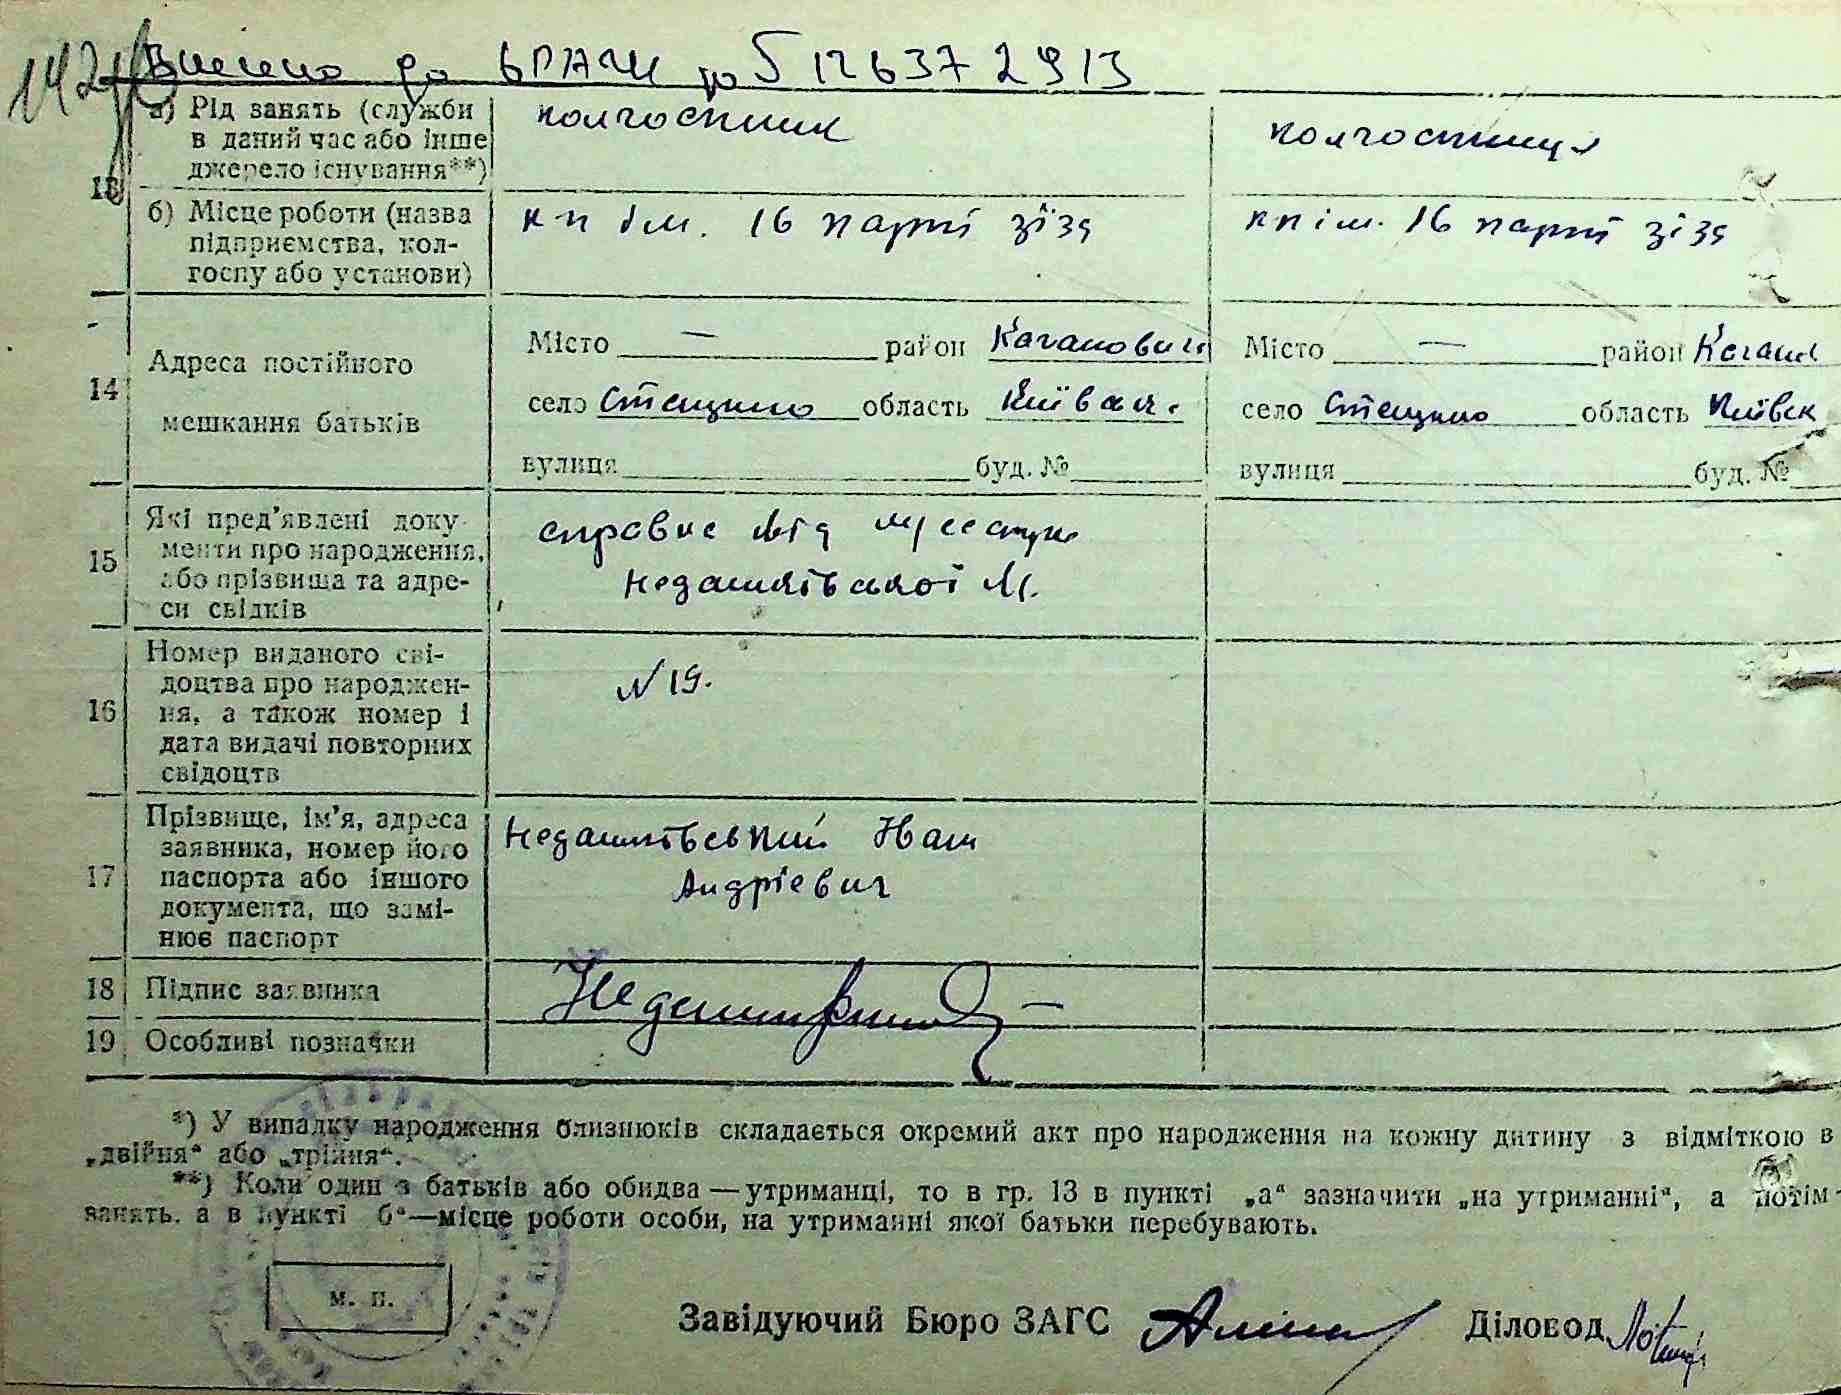 142
Внесено до ДРАЦС 005126372913
13
а) Рід занять (служби
в даний час або інше
джерело існування**)
колгоспник
колгоспниця
б) Місце роботи (назва
підприємства, кол-
госпу або установи)
к-п ім. 16 парті зїзд
к-п ім. 16 парті зізд
14
Адреса постійного
мешкання батьків
Місто — район Каганович
село Стещино область Київськ.
вулиця буд. №
Місто — район Каган
село Стещино область Київськ
вулиця буд. №
15
Які пред'явлені доку-
менти про народження,
або прізвища та адре-
си свідків
справка від
Недашківської М.
16
Номер виданого сві-
доцтва про народжен-
ня, а також номер і
дата видачі повторних
свідоцтв
N 19.
17
Прізвище, ім'я, адреса
заявника, номер його
паспорта або іншого
документа, що замі-
нює паспорт
Недашківський Іван
Андрієвич
18
Підпис заявника
19
Особливі позначки
*) У випадку народження близнюків складається окремий акт про народження на кожну дитину з відміткою в
„двійня“ або „трійня“.
**) Коли один з батьків або обидва—утриманці, то в гр. 13 в пункті „а“ зазначити „на утриманні“, а потім
занять, а в пункті б“—місце роботи особи, на утриманні якої батьки перебувають.
м. п.
Завідуючий Бюро ЗАГС
Діловод